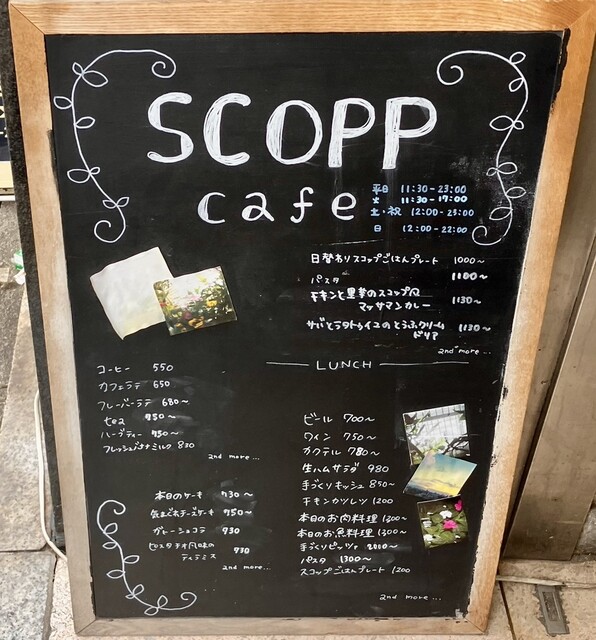 SCOPP
cafe
平日 11:30-23:00
火 11:30-17:00
土・祝 12:00-23:00
日 12:00-22:00
日替わりスコップごはんプレート 1000〜
パスタ 1100〜
チキンと里芋のスコップ風
マッサマンカレー 1130〜
サバとラタトゥイユのとうふクリーム
ドリア 1130〜
2nd more...
LUNCH
コーヒー 550
カフェラテ 650
フレーバーラテ 680〜
tea 750〜
ハーブティー 750〜
フレッシュバナナミルク 830
2nd more...
本日のケーキ 730〜
気まぐれチーズケーキ 750〜
ガトーショコラ 730
ピスタチオ風味の
ティラミス 730
2nd more...
ビール 700〜
ワイン 750〜
カクテル 780〜
生ハムサラダ 980
手づくりキッシュ 850〜
チキンカツレツ 1200
本日のお肉料理 1300〜
本日のお魚料理 1300〜
手づくりピッツァ 2000〜
パスタ 1300〜
スコップごはんプレート 1200
2nd more...